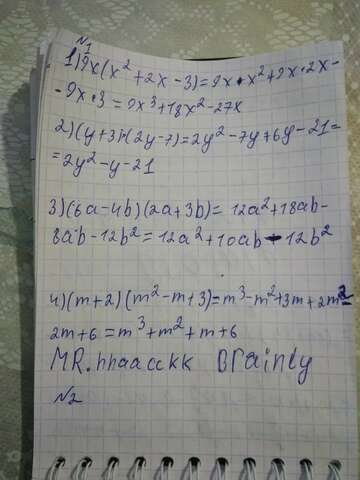 №1
1) 9x(x² + 2x - 3) = 9x · x² + 9x · 2x -
- 9x · 3 = 9x³ + 18x² - 27x
2) (y+3)·(2y-7) = 2y² - 7y + 6y - 21 =
= 2y² - y - 21
3) (6a - 4b)(2a + 3b) = 12a² + 18ab -
8ab - 12b² = 12a² + 10ab - 12b²
4) (m+2)(m² - m + 3) = m³ - m² + 3m + 2m² -
2m + 6 = m³ + m² + m + 6
MR.hhaacckk Brainly
№2